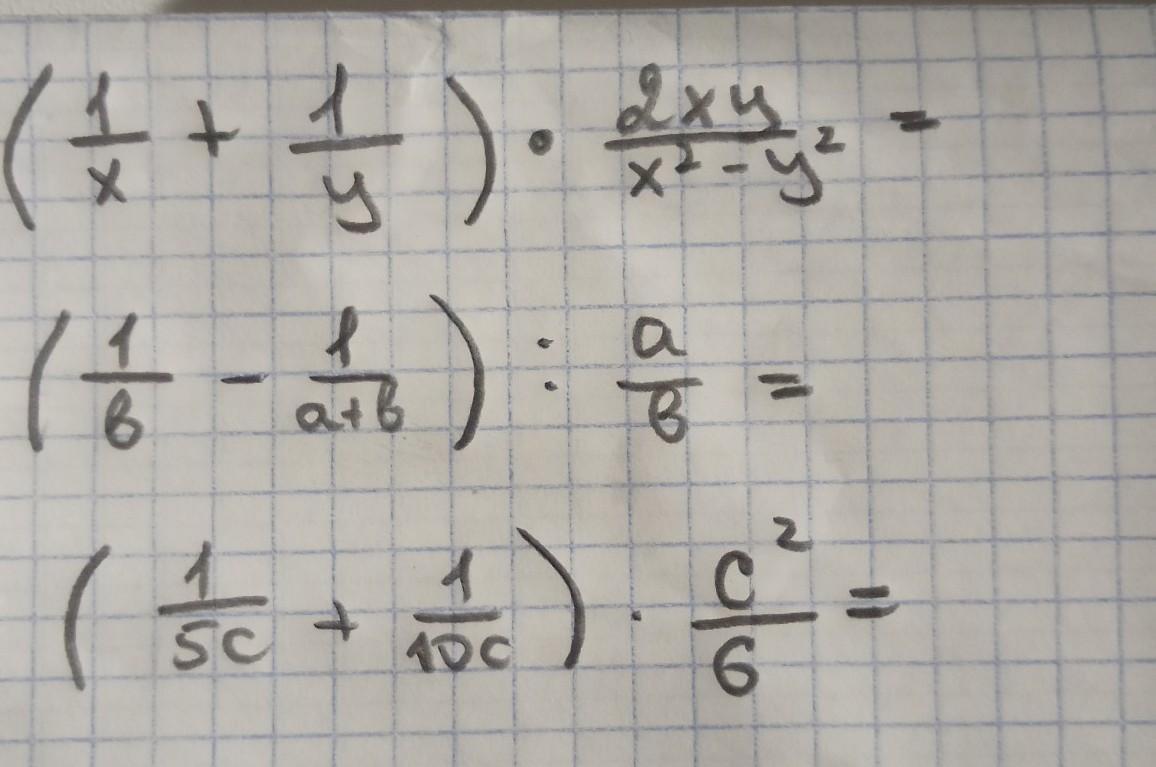 (1/x + 1/y) · 2xy/(x² - y²) =
(1/в - 1/(a+в)) : a/в =
(1/5c + 1/10c) · c²/6 =